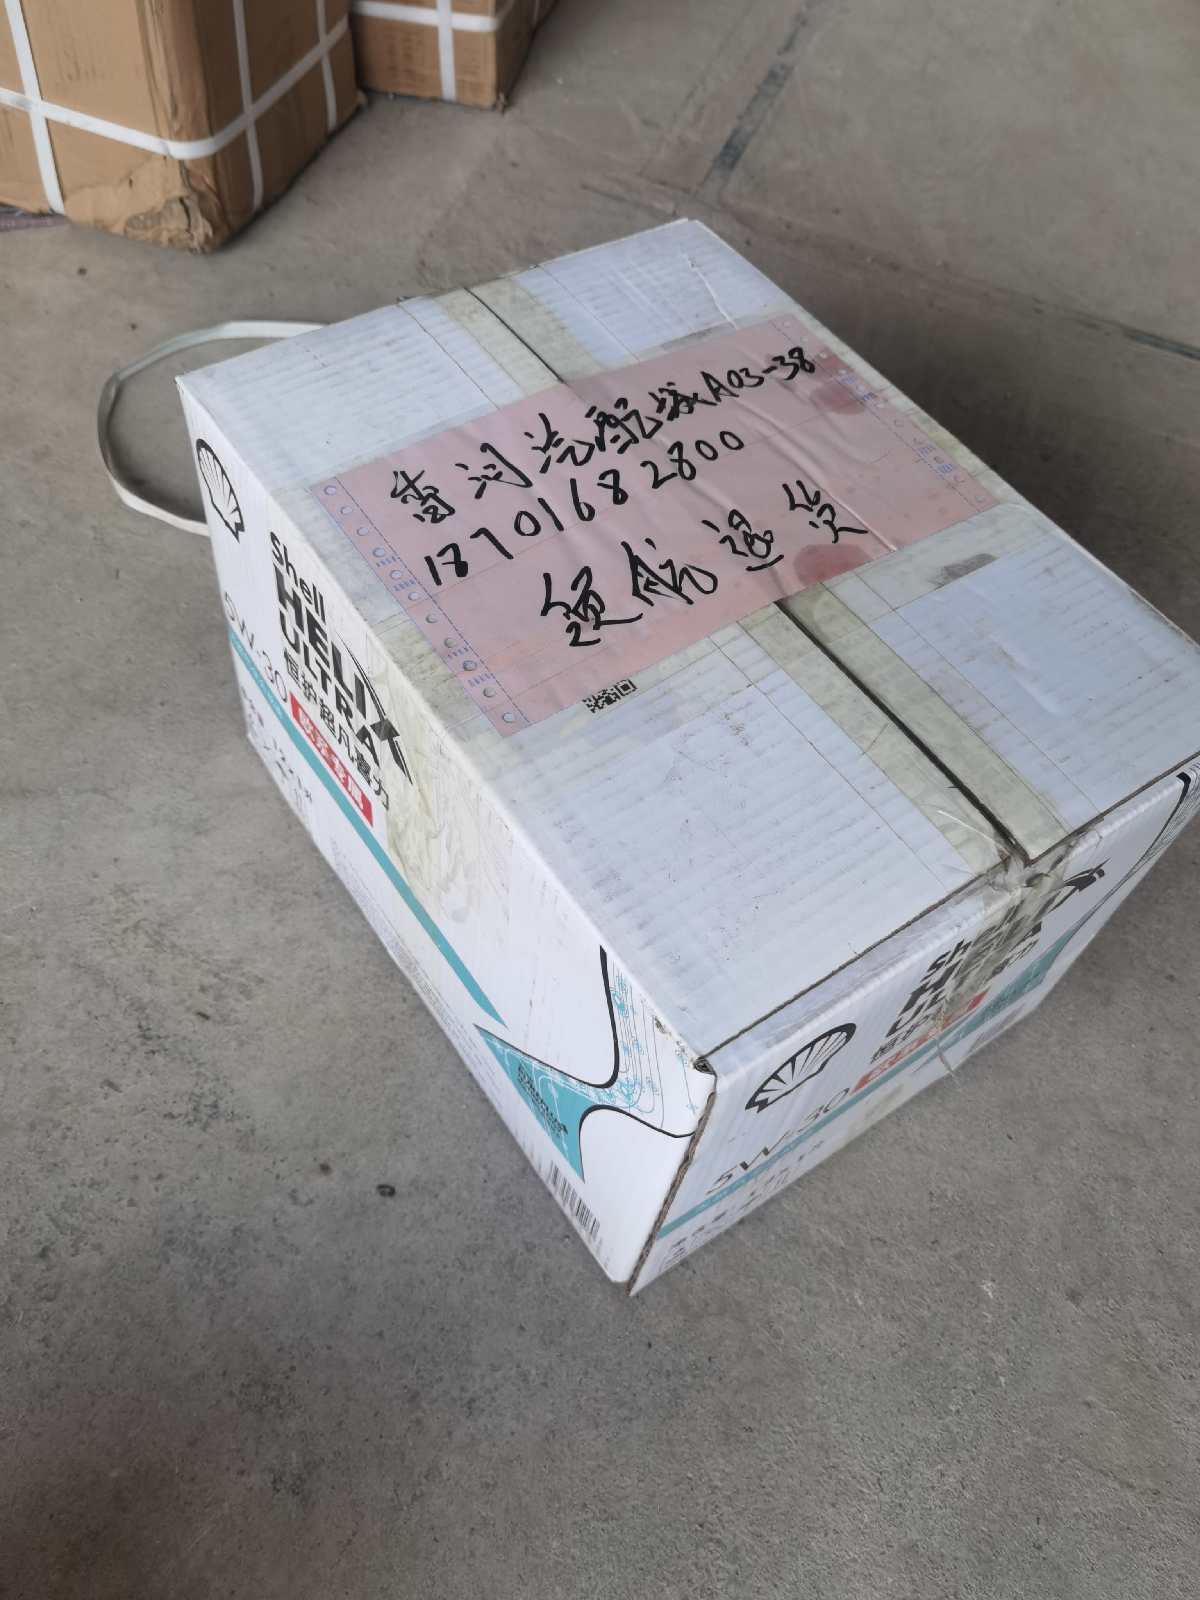 香河汽配城A03-38
18701682800
领航退货
Shell
HELIX
ULTRA
恒护超凡喜力
5W-30
欧系专属
Shell
HELIX
ULTRA
5W-30